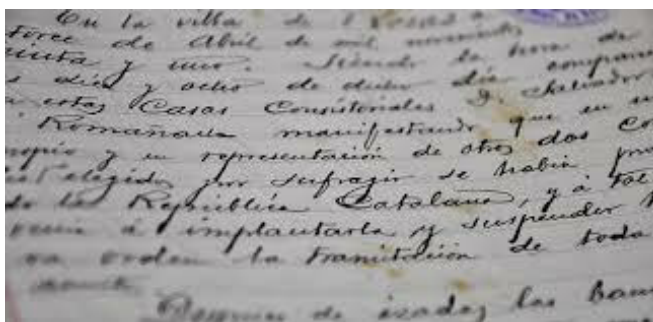 En la villa de
torce de Abril de mil novecientos
einta y uno. Siendo la hora de
s diez y ocho de dicho día compare
estas Casas Consistoriales D. Salvador
Romanacu manifestando que en
ropio y en representación de otros dos Co
elegidos por sufragio se había pro
do la República Catalana, y á tal
venía á implantarla y suspender
va orden la tramitación de toda
Despues de izadas las ban